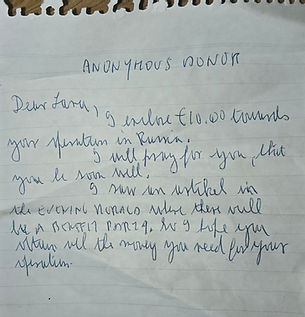 ANONYMOUS DONOR
Dear Lara,
I enclose €10.00 towards
your operation in Russia.
I will pray for you, that
you be soon well.
I saw an artikel in
the EVENING HERALD where there will
be A BENEFIT PARTY. So I hope you
obtain all the money you need for your
operation.